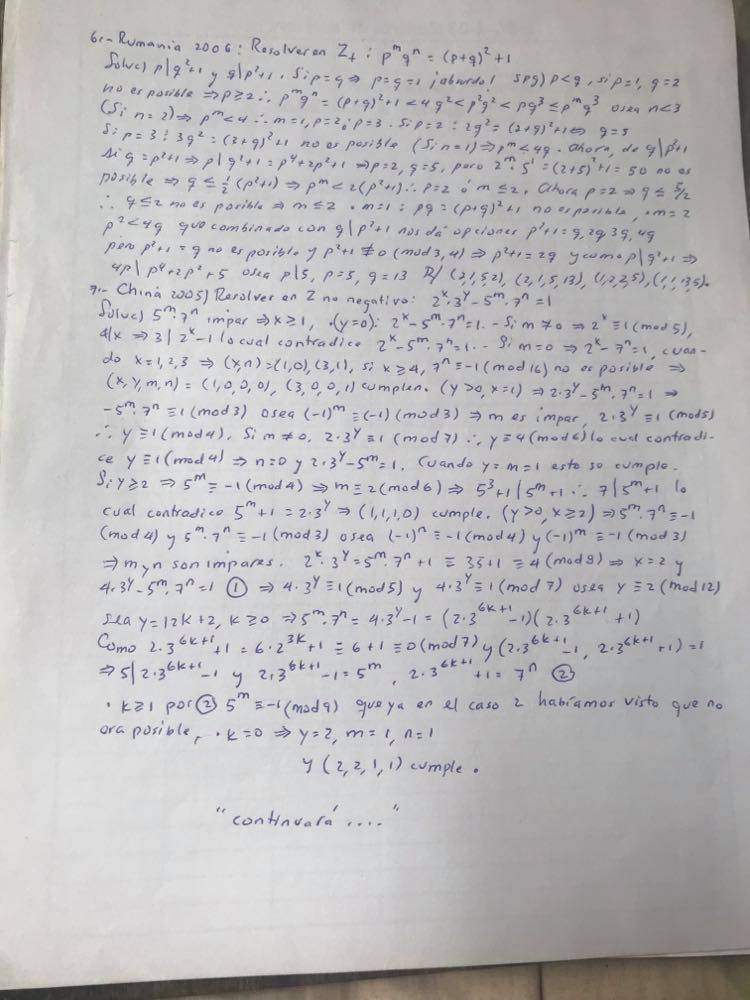 6.- Rumania 2006: Resolver en Z₊ : p^m q^n = (p+q)²+1
Soluc) p|q²+1 y q|p²+1. Si p=q ⇒ p=q=1 ¡absurdo! Spg) p<q, si p=1, q=2
no es posible ⇒ p≥2 ∴ p^m q^n = (p+q)²+1 < 4q² < p²q² < pq³ ≤ p^m q³ osea n<3
(Si n=2) ⇒ p^m<4 ∴ m=1, p=2 ó p=3. Si p=2 : 2q² = (2+q)²+1 ⇔ q=5
Si p=3 : 3q² = (3+q)²+1 no es posible (Si n=1) ⇒ p^m<4q. Ahora, de q|p²+1
si q=p²+1 ⇒ p|q²+1 = p⁴+2p²+1 ⇒ p=2, q=5, pero 2^m·5¹ = (2+5)²+1 = 50 no es
posible ⇒ q ≤ ½(p²+1) ⇒ p^m < 2(p²+1) ∴ p=2 ó m≤2. Ahora p=2 ⇒ q ≤ 5/2
∴ q≤2 no es posible ⇒ m≤2. •m=1: pq = (p+q)²+1 no es posible, •m=2
p²<4q que combinado con q|p²+1 nos dá opciones p²+1 = q, 2q, 3q, 4q
pero p²+1 = q no es posible y p²+1 ≢ 0 (mod 3,4) ⇒ p²+1 = 2q y como p|q²+1 ⇒
4p|p⁴+2p²+5 osea p|5, p=5, q=13 R/ (2,1,5,2), (2,1,5,13), (1,2,2,5), (1,1,13,5).
7.- China 2005) Resolver en Z no negativo: 2^x·3^y-5^m·7^n=1
Soluc) 5^m·7^n impar ⇒ x≥1, •(y=0): 2^x-5^m·7^n=1. - Si m≠0 ⇒ 2^x≡1 (mod 5),
4|x ⇒ 3|2^x-1 lo cual contradice 2^x-5^m·7^n=1. - Si m=0 ⇒ 2^x-7^n=1, cuan-
do x=1,2,3 ⇒ (x,n)=(1,0),(3,1), si x≥4, 7^n≡-1 (mod 16) no es posible ⇒
(x,y,m,n) = (1,0,0,0), (3,0,0,1) cumplen. (y>0, x=1) ⇒ 2·3^y-5^m·7^n=1 ⇒
-5^m·7^n≡1 (mod 3) osea (-1)^m≡(-1) (mod 3) ⇒ m es impar, 2·3^y≡1 (mod 5)
∴ y≡1 (mod 4). Si m≠0, 2·3^y≡1 (mod 7) ∴ y≡4 (mod 6) lo cual contradi-
ce y≡1 (mod 4) ⇒ n=0 y 2·3^y-5^m=1. Cuando y=m=1 esto se cumple.
Si y≥2 ⇒ 5^m≡-1 (mod 9) ⇒ m≡2 (mod 6) ⇒ 5³+1|5^m+1 ∴ 7|5^m+1 lo
cual contradice 5^m+1 = 2·3^y ⇒ (1,1,1,0) cumple. (y>0, x≥2) ⇒ 5^m·7^n≡-1
(mod 4) y 5^m·7^n≡-1 (mod 3) osea (-1)^n≡-1 (mod 4) y (-1)^m≡-1 (mod 3)
⇒ m y n son impares. 2^x·3^y = 5^m·7^n+1 ≡ 35+1 ≡ 4 (mod 8) ⇒ x=2 y
4·3^y-5^m·7^n=1 ① ⇒ 4·3^y≡1 (mod 5) y 4·3^y≡1 (mod 7) osea y≡2 (mod 12)
sea y=12k+2, k≥0 ⇒ 5^m·7^n = 4·3^y-1 = (2·3^{6k+1}-1)(2·3^{6k+1}+1)
Como 2·3^{6k+1}+1 = 6·2^{3k}+1 ≡ 6+1 ≡ 0 (mod 7) y (2·3^{6k+1}-1, 2·3^{6k+1}+1)=1
⇒ 5|2·3^{6k+1}-1 y 2·3^{6k+1}-1=5^m, 2·3^{6k+1}+1=7^n ②
• k≥1 por ② 5^m≡-1 (mod 9) que ya en el caso 2 habíamos visto que no
era posible, • k=0 ⇒ y=2, m=1, n=1
y (2,2,1,1) cumple.
"continuará ...."